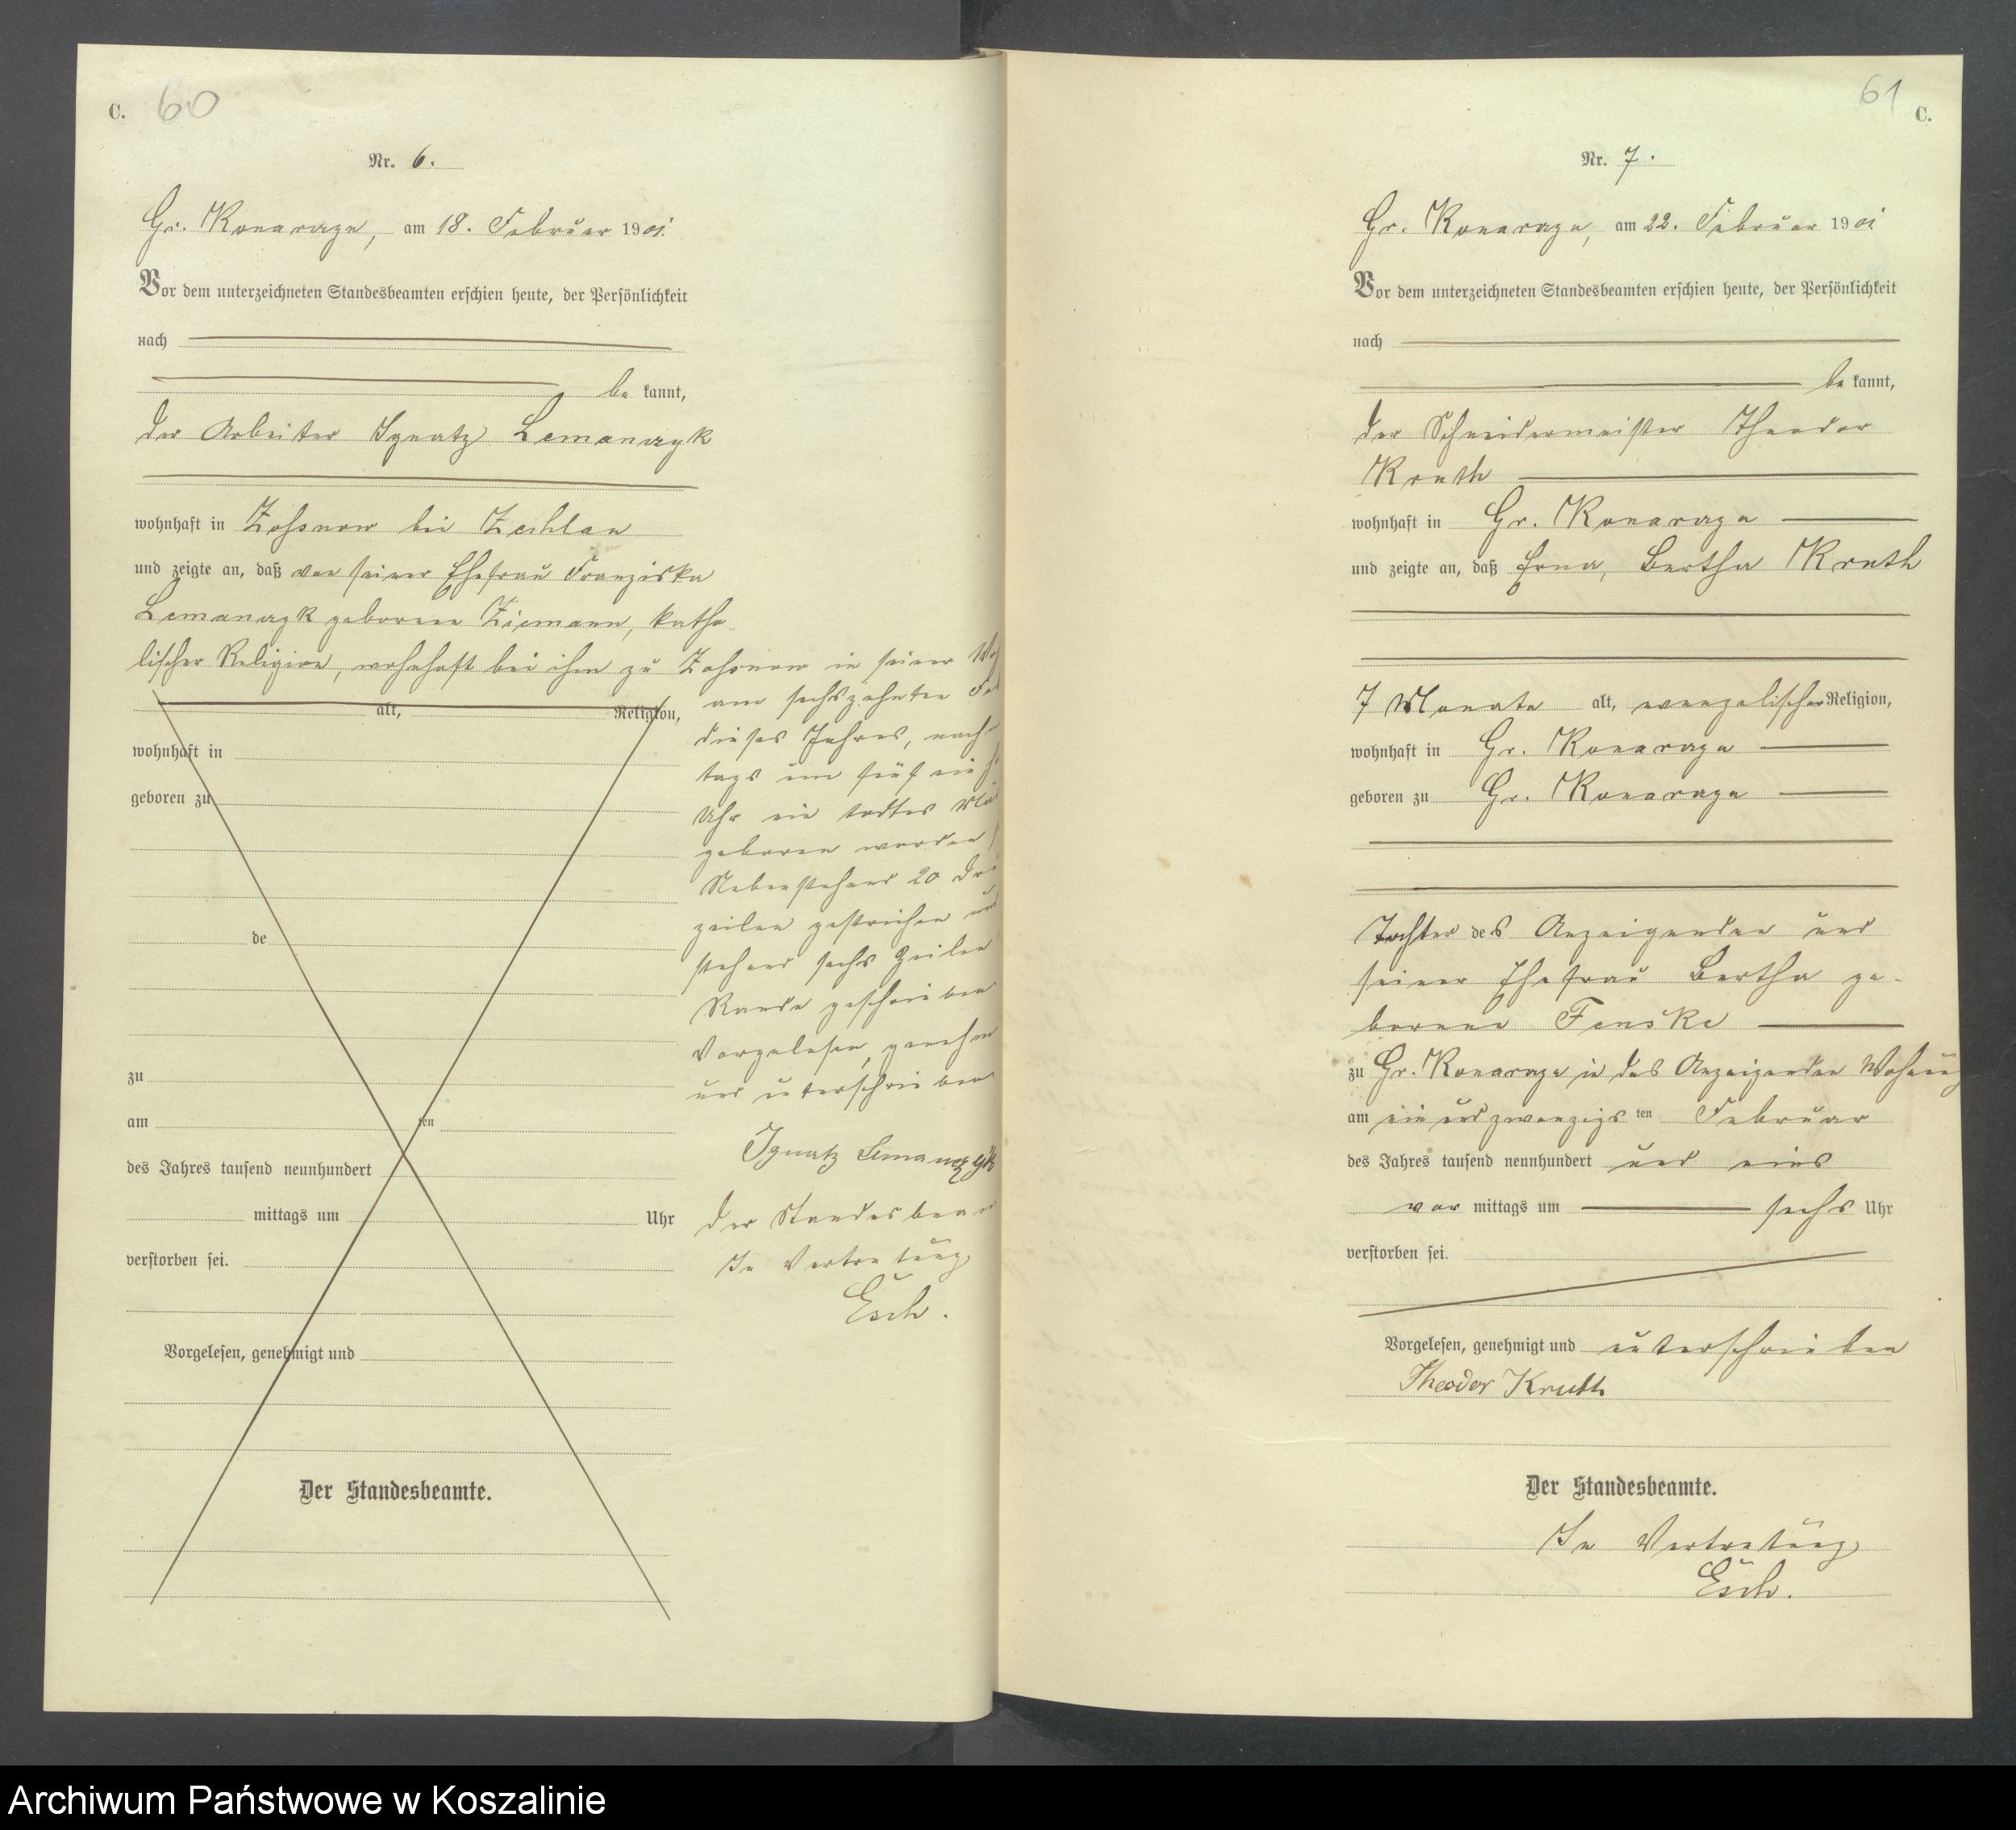 C. 60
Nr. 6.
Gr. Konarczyn, am 18. Februar 1901.
Vor dem unterzeichneten Standesbeamten erschien heute, der Persönlichkeit
nach
be kannt,
der Arbeiter Ignatz Lemanczyk
wohnhaft in Zosnow bei Zechlau
und zeigte an, daß von seiner Ehefrau Franziska
Lemanczyk geborene Ziemann, katho-
lischer Religion, wohnhaft bei ihm zu Zosnow in seiner
am sechszehnten
dieses Jahres, nach
tags um fünf ein
Uhr ein todtes
geboren worden
Nebenstehend 20
zeilen gestrichen
stehend sechs Zeilen
Rande geschrieben
Vorgelesen, genehm
und unterschrieben
Ignatz Lemanczyk
Der Standesbeam
In Vertretung
Esch.
alt, Religion,
wohnhaft in
geboren zu
de
zu
am ten
des Jahres tausend neunhundert
mittags um Uhr
verstorben sei.
Vorgelesen, genehmigt und
Der Standesbeamte.
61 C.
Nr. 7.
Gr. Konarczyn, am 22. Februar 1901
Vor dem unterzeichneten Standesbeamten erschien heute, der Persönlichkeit
nach
be kannt,
der Schneidermeister Theodor
Kruth
wohnhaft in Gr. Konarczyn
und zeigte an, daß Erna, Bertha Kruth
7 Monate alt, evangelischer Religion,
wohnhaft in Gr. Konarczyn
geboren zu Gr. Konarczyn
Tochter des Anzeigenden und
seiner Ehefrau Bertha ge-
borene Fenske
zu Gr. Konarczyn in des Anzeigenden Wohnung
am ein und zwanzigs ten Februar
des Jahres tausend neunhundert und eins
vor mittags um sechs Uhr
verstorben sei.
Vorgelesen, genehmigt und unterschrieben
Theodor Kruth
Der Standesbeamte.
In Vertretung
Esch.
Archiwum Państwowe w Koszalinie